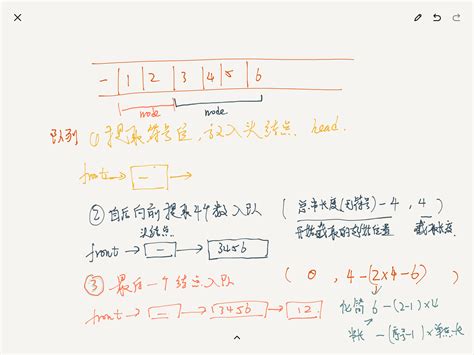 - 1 2 3 4 5 6
node node
队列 ① 提取符号位，放入头结点. head.
front → -
② 自后向前提取4个数入队 (总串长度(无符号)-4, 4)
头结点. 开始截取的起始位置 截取长度.
front → - → 3456
③ 最后一个结点入队 (0, 4-(2×4-6))
front → - → 3456 → 12 化简 6-(2-1)×4
串长 -(序号-1)×单点长